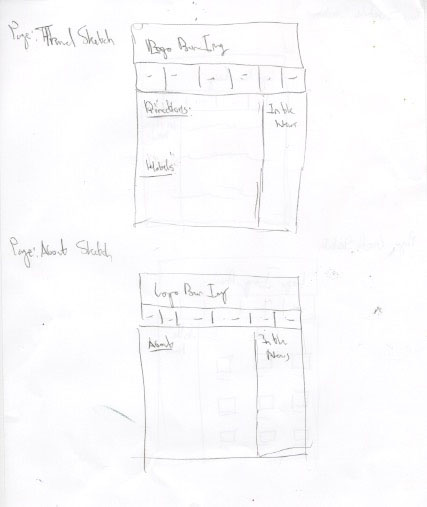 Page: Travel Sketch
Logo Ban Img
Directions
In the
News
Hotels
Page: About Sketch
Logo Ban Img
About
In the
News